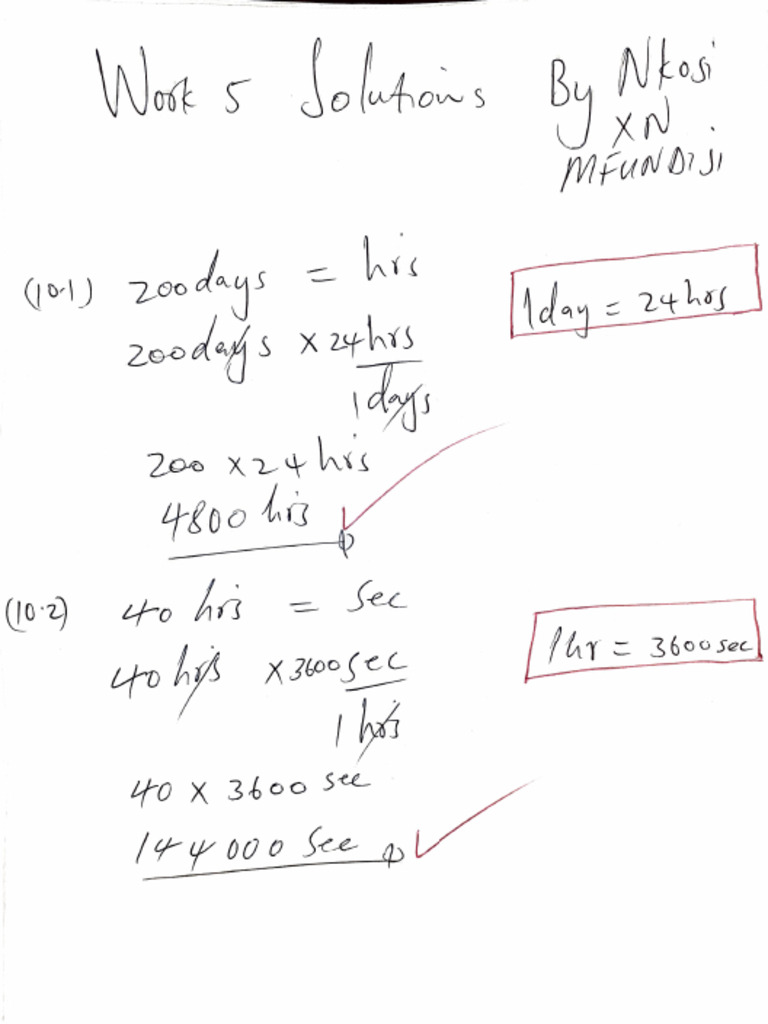 Work 5 Solutions By Nkosi
XN
MFUNDISI
(10.1) 200days = hrs
1day = 24hrs
200days × 24hrs
1days
200 × 24 hrs
4800 hrs
(10.2) 40 hrs = Sec
1hr = 3600sec
40 hrs × 3600sec
1 hrs
40 × 3600 sec
144 000 Sec